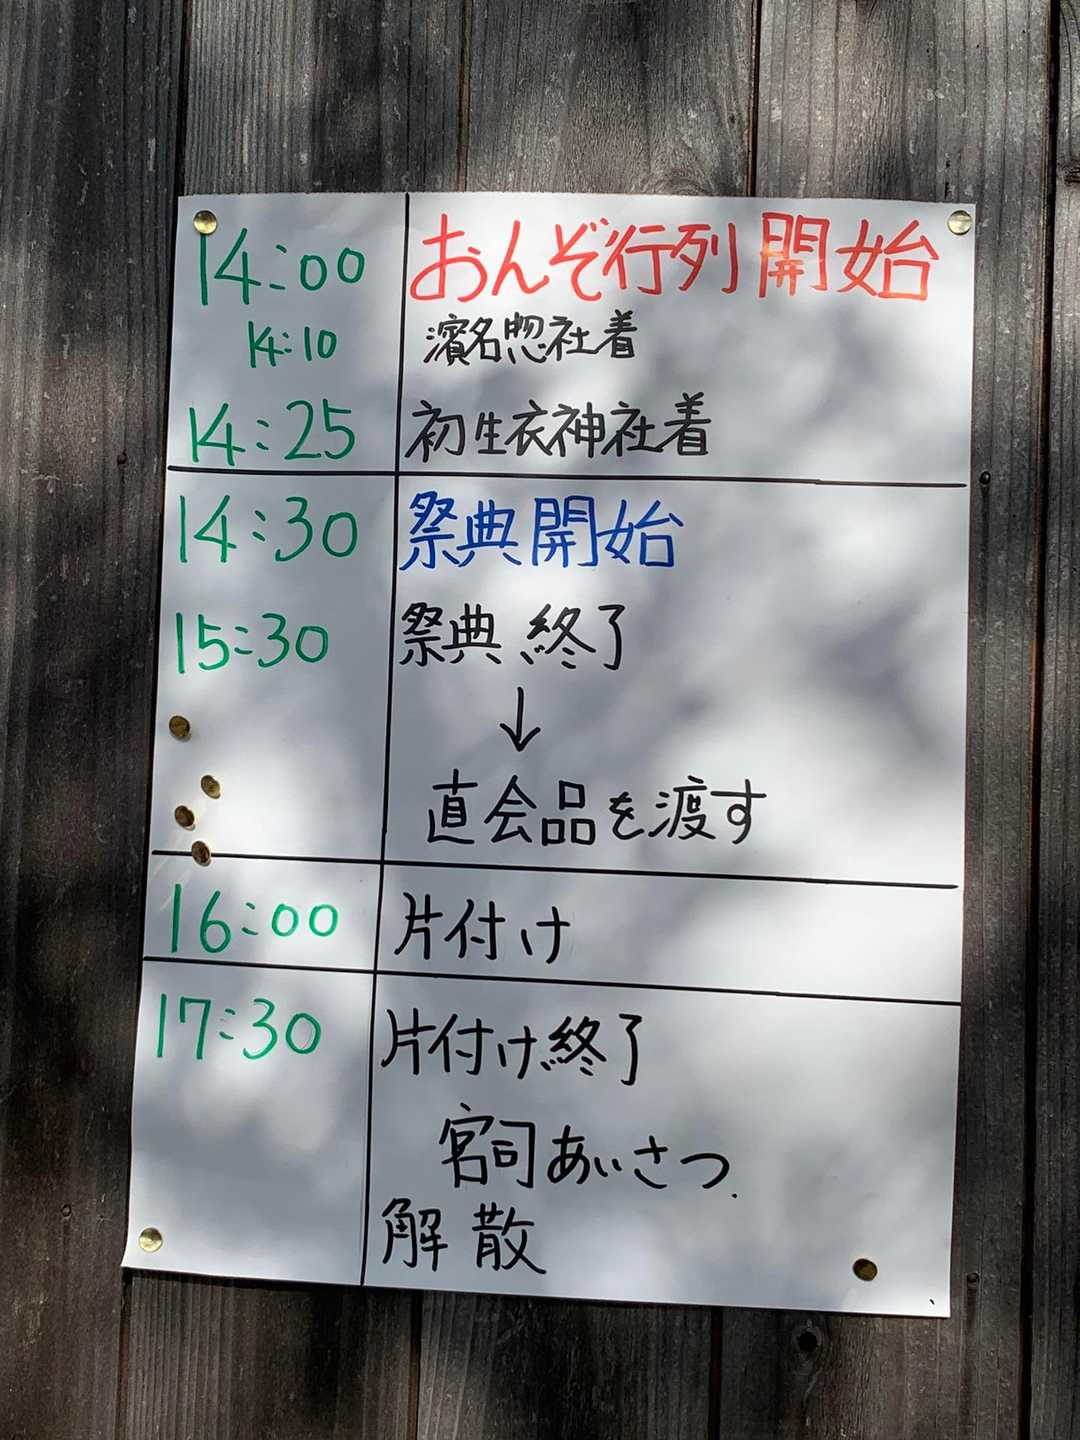 14:00 おんぞ行列開始
14:10 濱名惣社着
14:25 初生衣神社着
14:30 祭典開始
15:30 祭典終了
↓
直会品を渡す
16:00 片付け
17:30 片付け終了
宮司あいさつ
解散